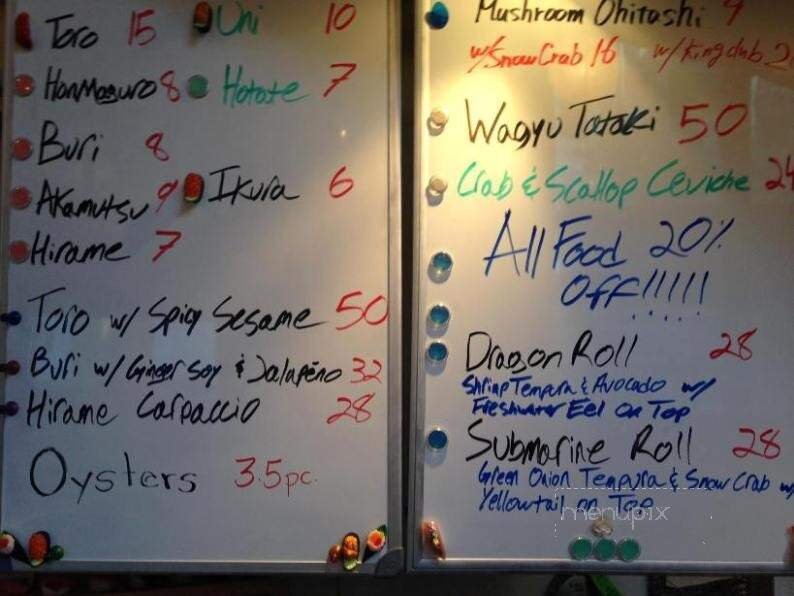 Toro 15 Uni 10
HonMaguro 8 Hotate 7
Buri 8
Akamutsu 9 Ikura 6
Hirame 7
Toro w/ Spicy Sesame 50
Buri w/ Ginger Soy & Jalapeño 32
Hirame Carpaccio 28
Oysters 3.5pc.
Mushroom Ohitashi 9
w/ Snow Crab 16 w/ King
Wagyu Tataki 50
Crab & Scallop Ceviche 24
All Food 20%
Off!!!!!
Dragon Roll 28
Shrimp Tempura & Avocado w/
Freshwater Eel on Top
Submarine Roll 28
Green Onion Tempura & Snow Crab w/
Yellowtail on Top
menupix